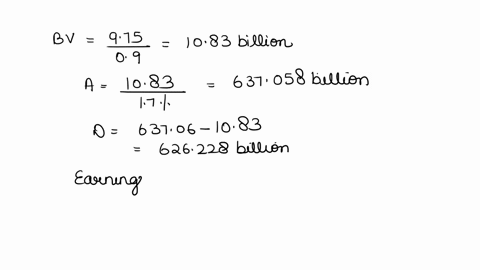 BV = 9.75 / 0.9 = 10.83 billion
A = 10.83 / 1.7% = 637.058 billion
D = 637.06 - 10.83
= 626.228 billion
Earning